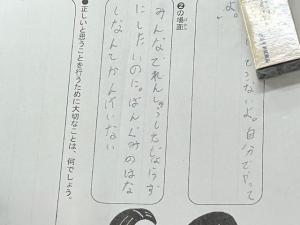 よ。
てきないよ。自分でやって
❷の場面
みんなでれんしゅうしたしなにす
にしたいのに。ばんぐみのはな
しなんてかんけいない
●正しいと思うことを行うために大切なことは、何でしょう。